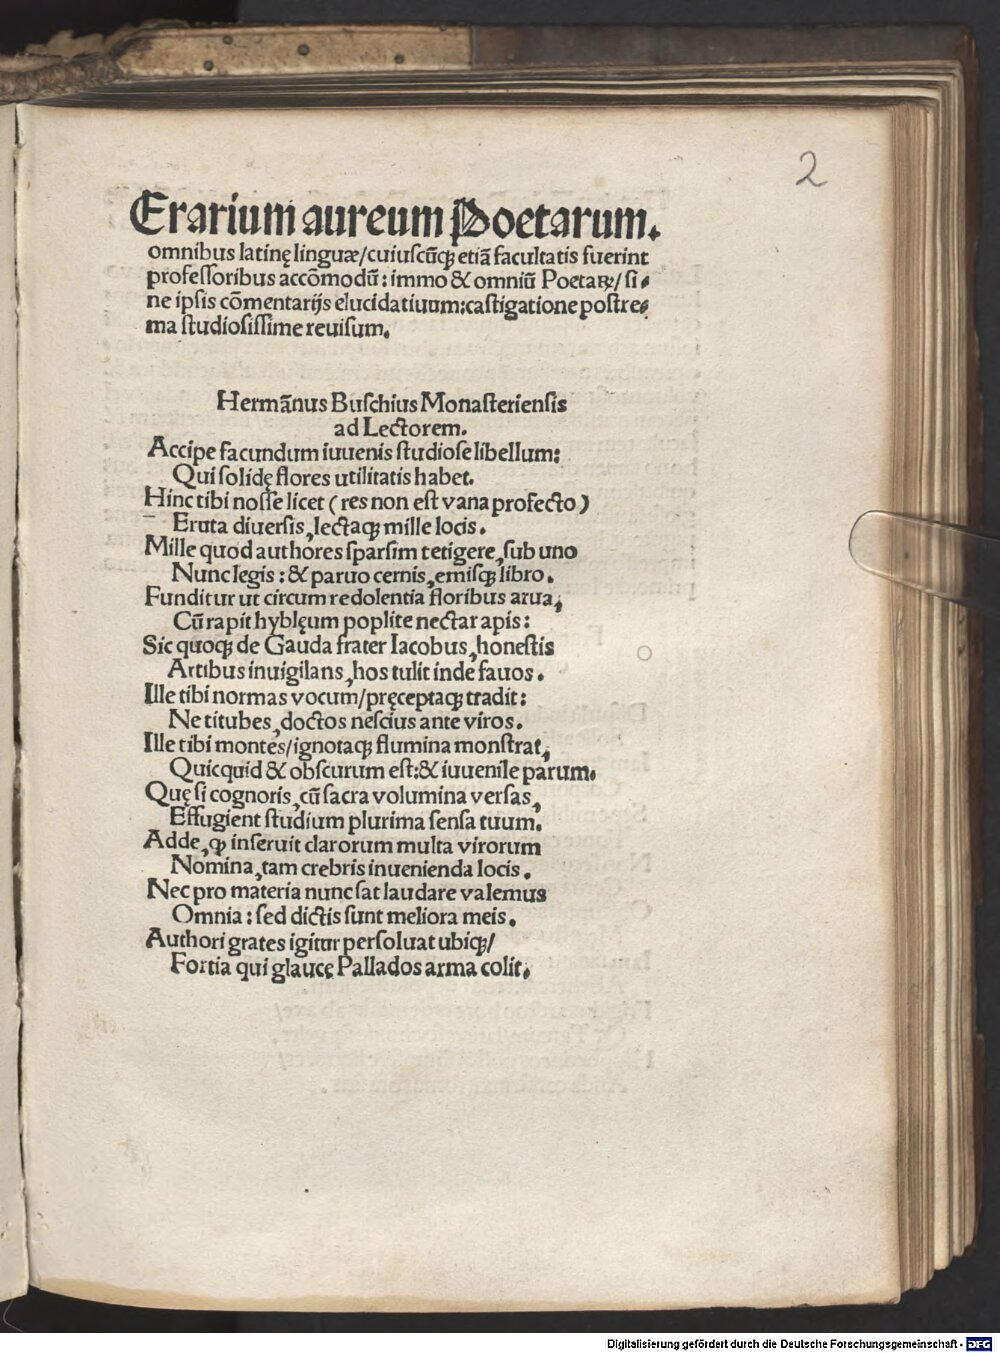 2
Erarium aureum Poetarum.
omnibus latinę linguæ/cuiuscũqꝫ etiã facultatis fuerint
professoribus accõmodũ: immo & omniũ Poetaꝝ/ si⸗
ne ipsis cõmentarijs elucidatiuum: castigatione postre⸗
ma studiosissime reuisum.
Hermãnus Buschius Monasteriensis
ad Lectorem.
Accipe facundum iuuenis studiose libellum:
Qui solidę flores utilitatis habet.
Hinc tibi nosse licet (res non est vana profecto)
Eruta diuersis, lectaqꝫ mille locis.
Mille quod authores sparsim tetigere, sub uno
Nunc legis: & paruo cernis, emisqꝫ libro.
Funditur ut circum redolentia floribus arua,
Cũ rapit hyblęum poplite nectar apis:
Sic quoqꝫ de Gauda frater Iacobus, honestis
Artibus inuigilans, hos tulit inde fauos.
Ille tibi normas vocum/pręceptaqꝫ tradit:
Ne titubes, doctos nescius ante viros.
Ille tibi montes/ignotaqꝫ flumina monstrat,
Quicquid & obscurum est: & iuuenile parum.
Quę si cognoris, cũ sacra volumina versas,
Effugient studium plurima sensa tuum.
Adde, ꝙ inseruit clarorum multa virorum
Nomina, tam crebris inuenienda locis.
Nec pro materia nunc sat laudare valemus
Omnia: sed dictis sunt meliora meis.
Authori grates igitur persoluat ubiqꝫ/
Fortia qui glaucę Pallados arma colit.
Digitalisierung gefördert durch die Deutsche Forschungsgemeinschaft - DFG